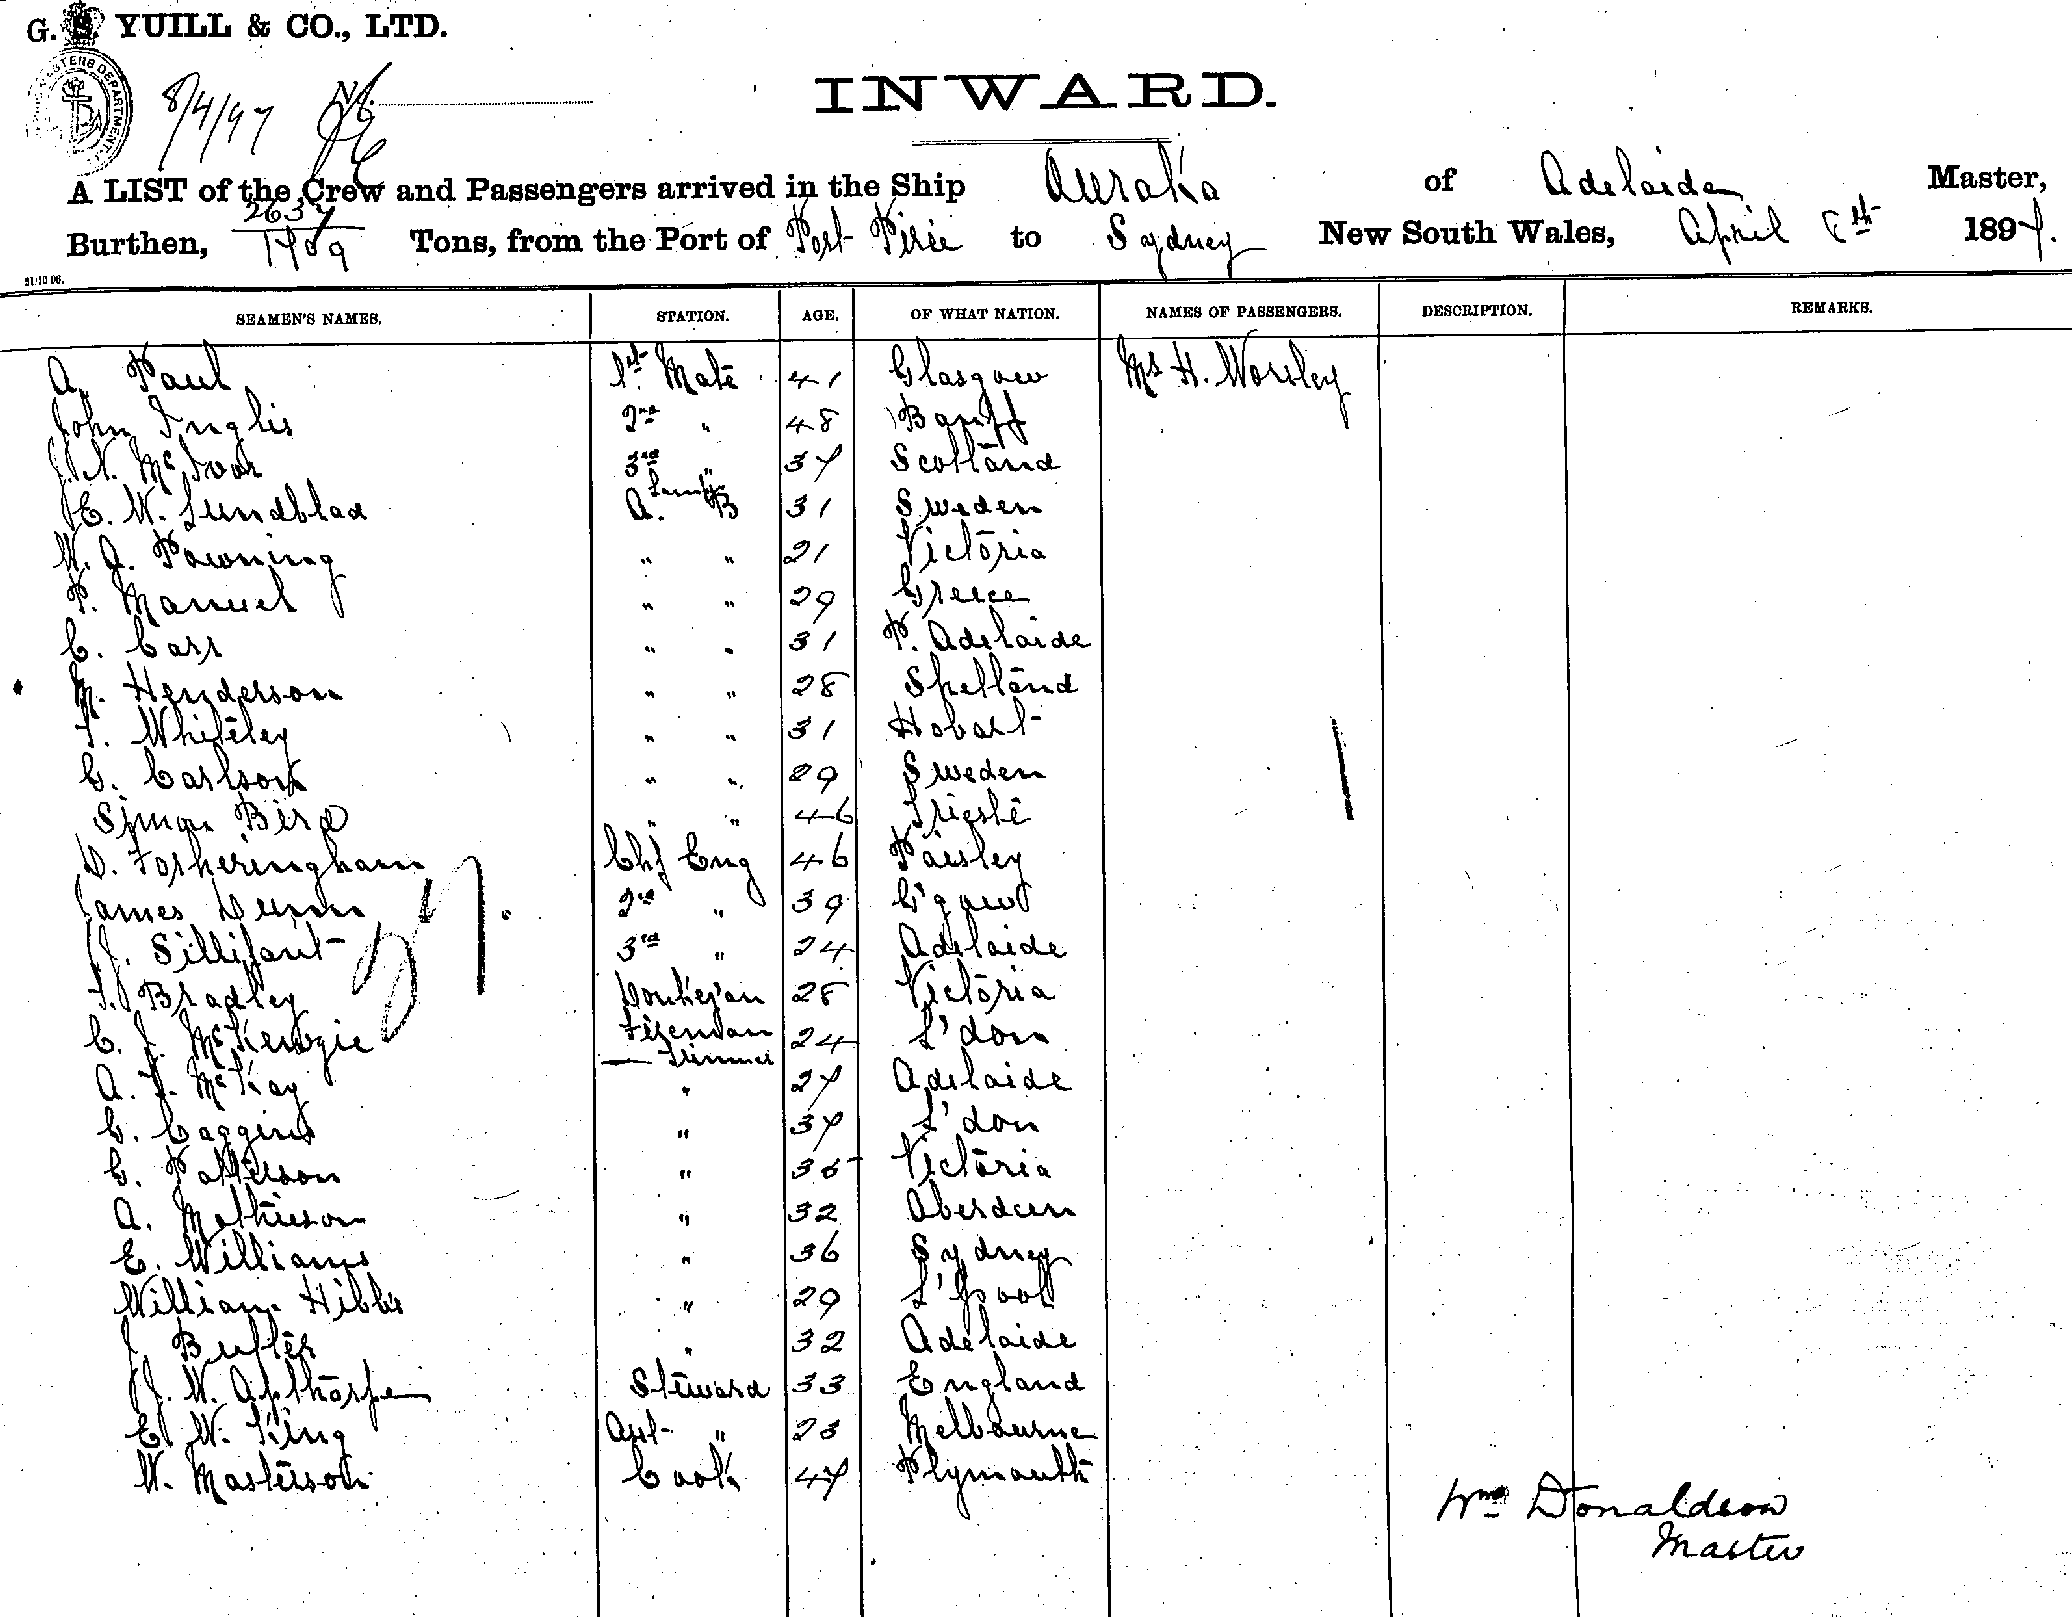 G. S. YUILL & CO., LTD.
8/4/97
INWARD.
A LIST of the Crew and Passengers arrived in the Ship Auraka of Adelaide Master,
Burthen, 2637 / 1709 Tons, from the Port of Port Pirie to Sydney New South Wales, April 8th 1897.
SEAMEN'S NAMES. STATION. AGE. OF WHAT NATION. NAMES OF PASSENGERS. DESCRIPTION. REMARKS.
A. Paul 1st Mate 41 Glasgow Mr H. Worsley
John Inglis 2nd " 48 Banff
McIvor 3rd " 37 Scotland
E. W. Lundblad A. B 31 Sweden
W. A. Pawning " " 21 Victoria
P. Manuel " " 29 Greece
C. Carr " " 31 P. Adelaide
M. Henderson " " 28 Shetland
T. Whiteley " " 31 Hobart
C. Carlson " " 29 Sweden
Bird " " 46 Trieste
D. Fotheringham Chf Eng 46 Paisley
James Dunn 2nd " 39 G'gow
J. Sillifant 3rd " 24 Adelaide
T. Bradley Donkeyman 28 Victoria
C. J. McKenzie Fireman 24 L'don
— Trimmer
A. F. McKay " 27 Adelaide
C. Coggins " 37 L'don
G. Patterson " 35 Victoria
A. Mathieson " 32 Aberdeen
E. Williams " 36 Sydney
William Hibbs " 29 L'pool
J. Butler " 32 Adelaide
J. W. Apthorpe Steward 33 England
E. W. King Asst " 23 Melbourne
W. Masterson Cook 47 Plymouth
Wm Donaldson
Master